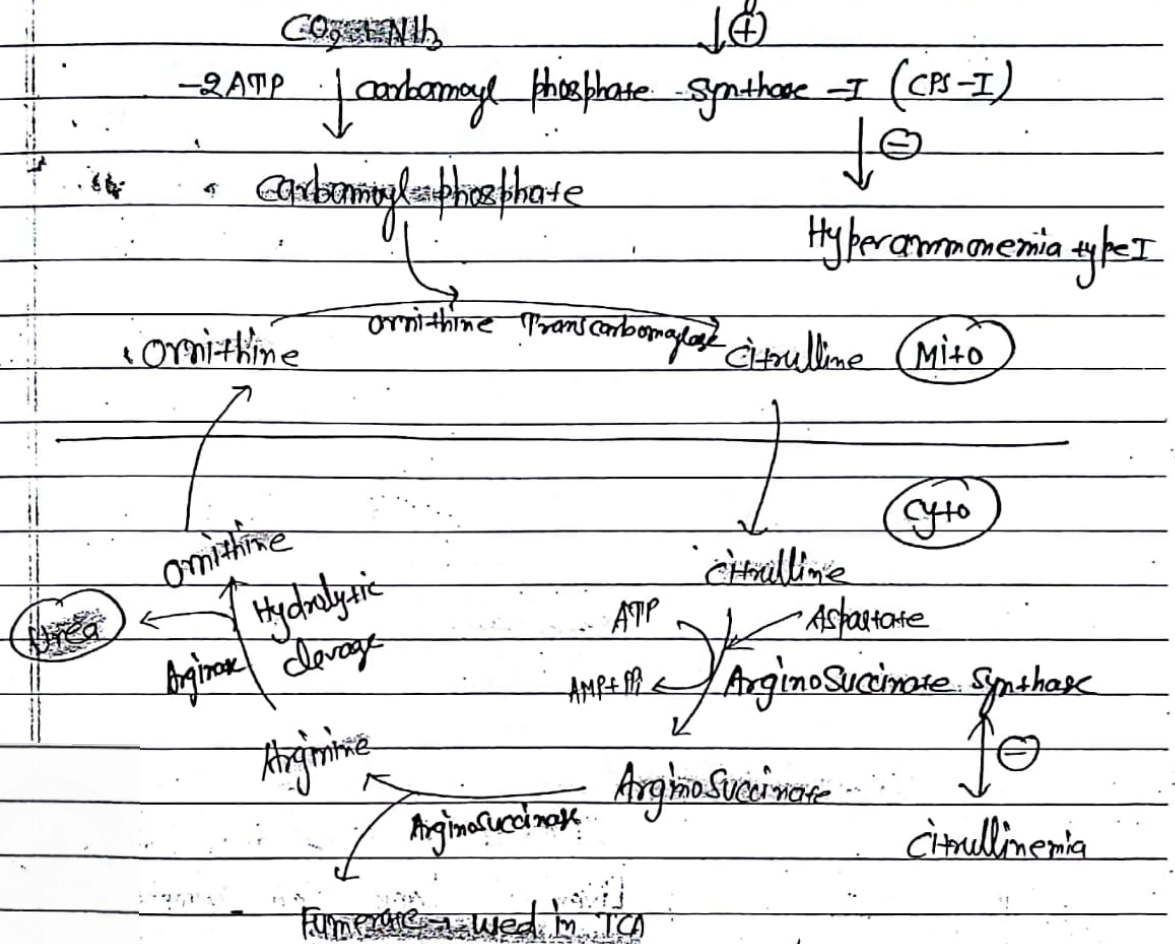 CO2 + NH3
↓ ⊕
-2ATP ↓ carbamoyl phosphate synthase -I (CPS-I)
↓ ⊖
Carbamoyl phosphate
Hyperammonemia type I
Ornithine Transcarbamoylase
Ornithine
Citrulline
Mito
Cyto
Ornithine
Citrulline
Hydrolytic
clevage
Urea
Arginase
ATP
Aspartate
AMP+PPi
ArginoSuccinate Synthase
⊖
Arginine
ArginoSuccinate
Arginosuccinase
Citrullinemia
Fumerate → used in TCA